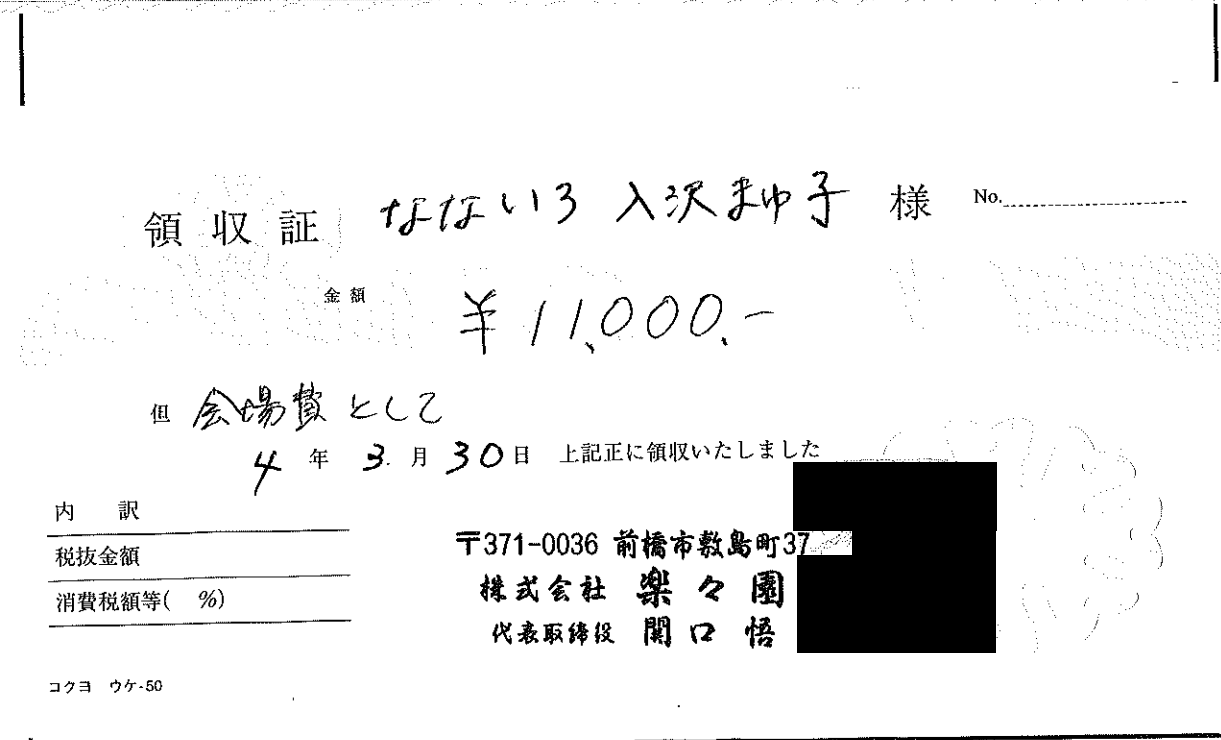 領収証 なないろ 入沢まゆ子 様 No.
金額 ¥11,000.-
但 会場費として
4年3.月30日 上記正に領収いたしました
内訳
税抜金額
消費税額等( %)
〒371-0036 前橋市敷島町37
株式会社 楽々園
代表取締役 関口悟
コクヨ ウケ-50